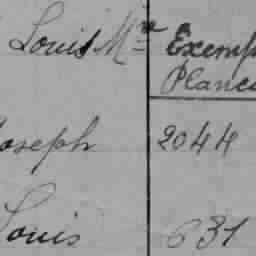 Louis Mie Exemp
Planc
Joseph 2044
Louis 631